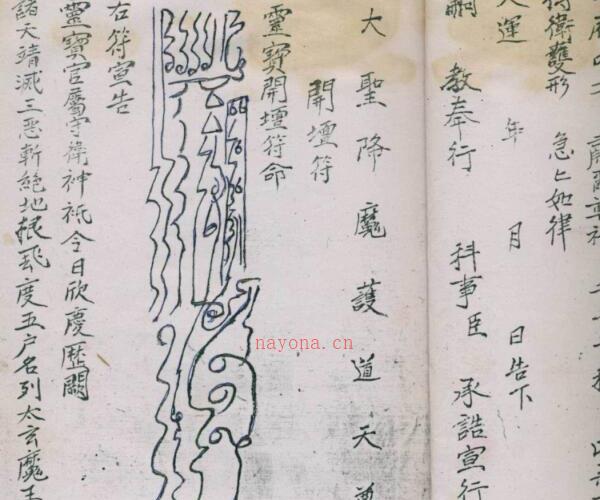 衛護形 急々如律
大運 年 月 日告下
嗣 教奉行 科事臣 承誥宣行
大聖降魔護道天尊
開壇符
靈寶開壇符命
右符宣告
靈寶官屬守衛神祇今日欣慶歷關
諸天靖滅三惡斬絕地根飛度五户名列太玄魔王
nayona.cn